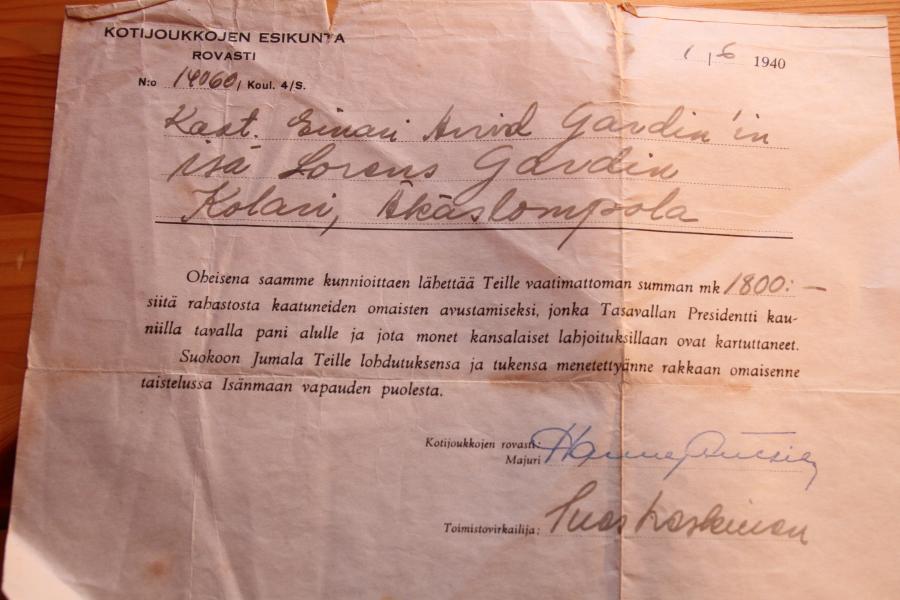 KOTIJOUKKOJEN ESIKUNTA
ROVASTI
N:o 14060/ Koul. 4/S.
1/6 1940
Kaat. Einari Arvid Gardin'in
isä Lorens Gardin
Kolari, Äkäslompola
Oheisena saamme kunnioittaen lähettää Teille vaatimattoman summan mk 1800:—
siitä rahastosta kaatuneiden omaisten avustamiseksi, jonka Tasavallan Presidentti kau-
niilla tavalla pani alulle ja jota monet kansalaiset lahjoituksillaan ovat kartuttaneet.
Suokoon Jumala Teille lohdutuksensa ja tukensa menetettyänne rakkaan omaisenne
taistelussa Isänmaan vapauden puolesta.
Kotijoukkojen rovasti:
Majuri
Toimistovirkailija: